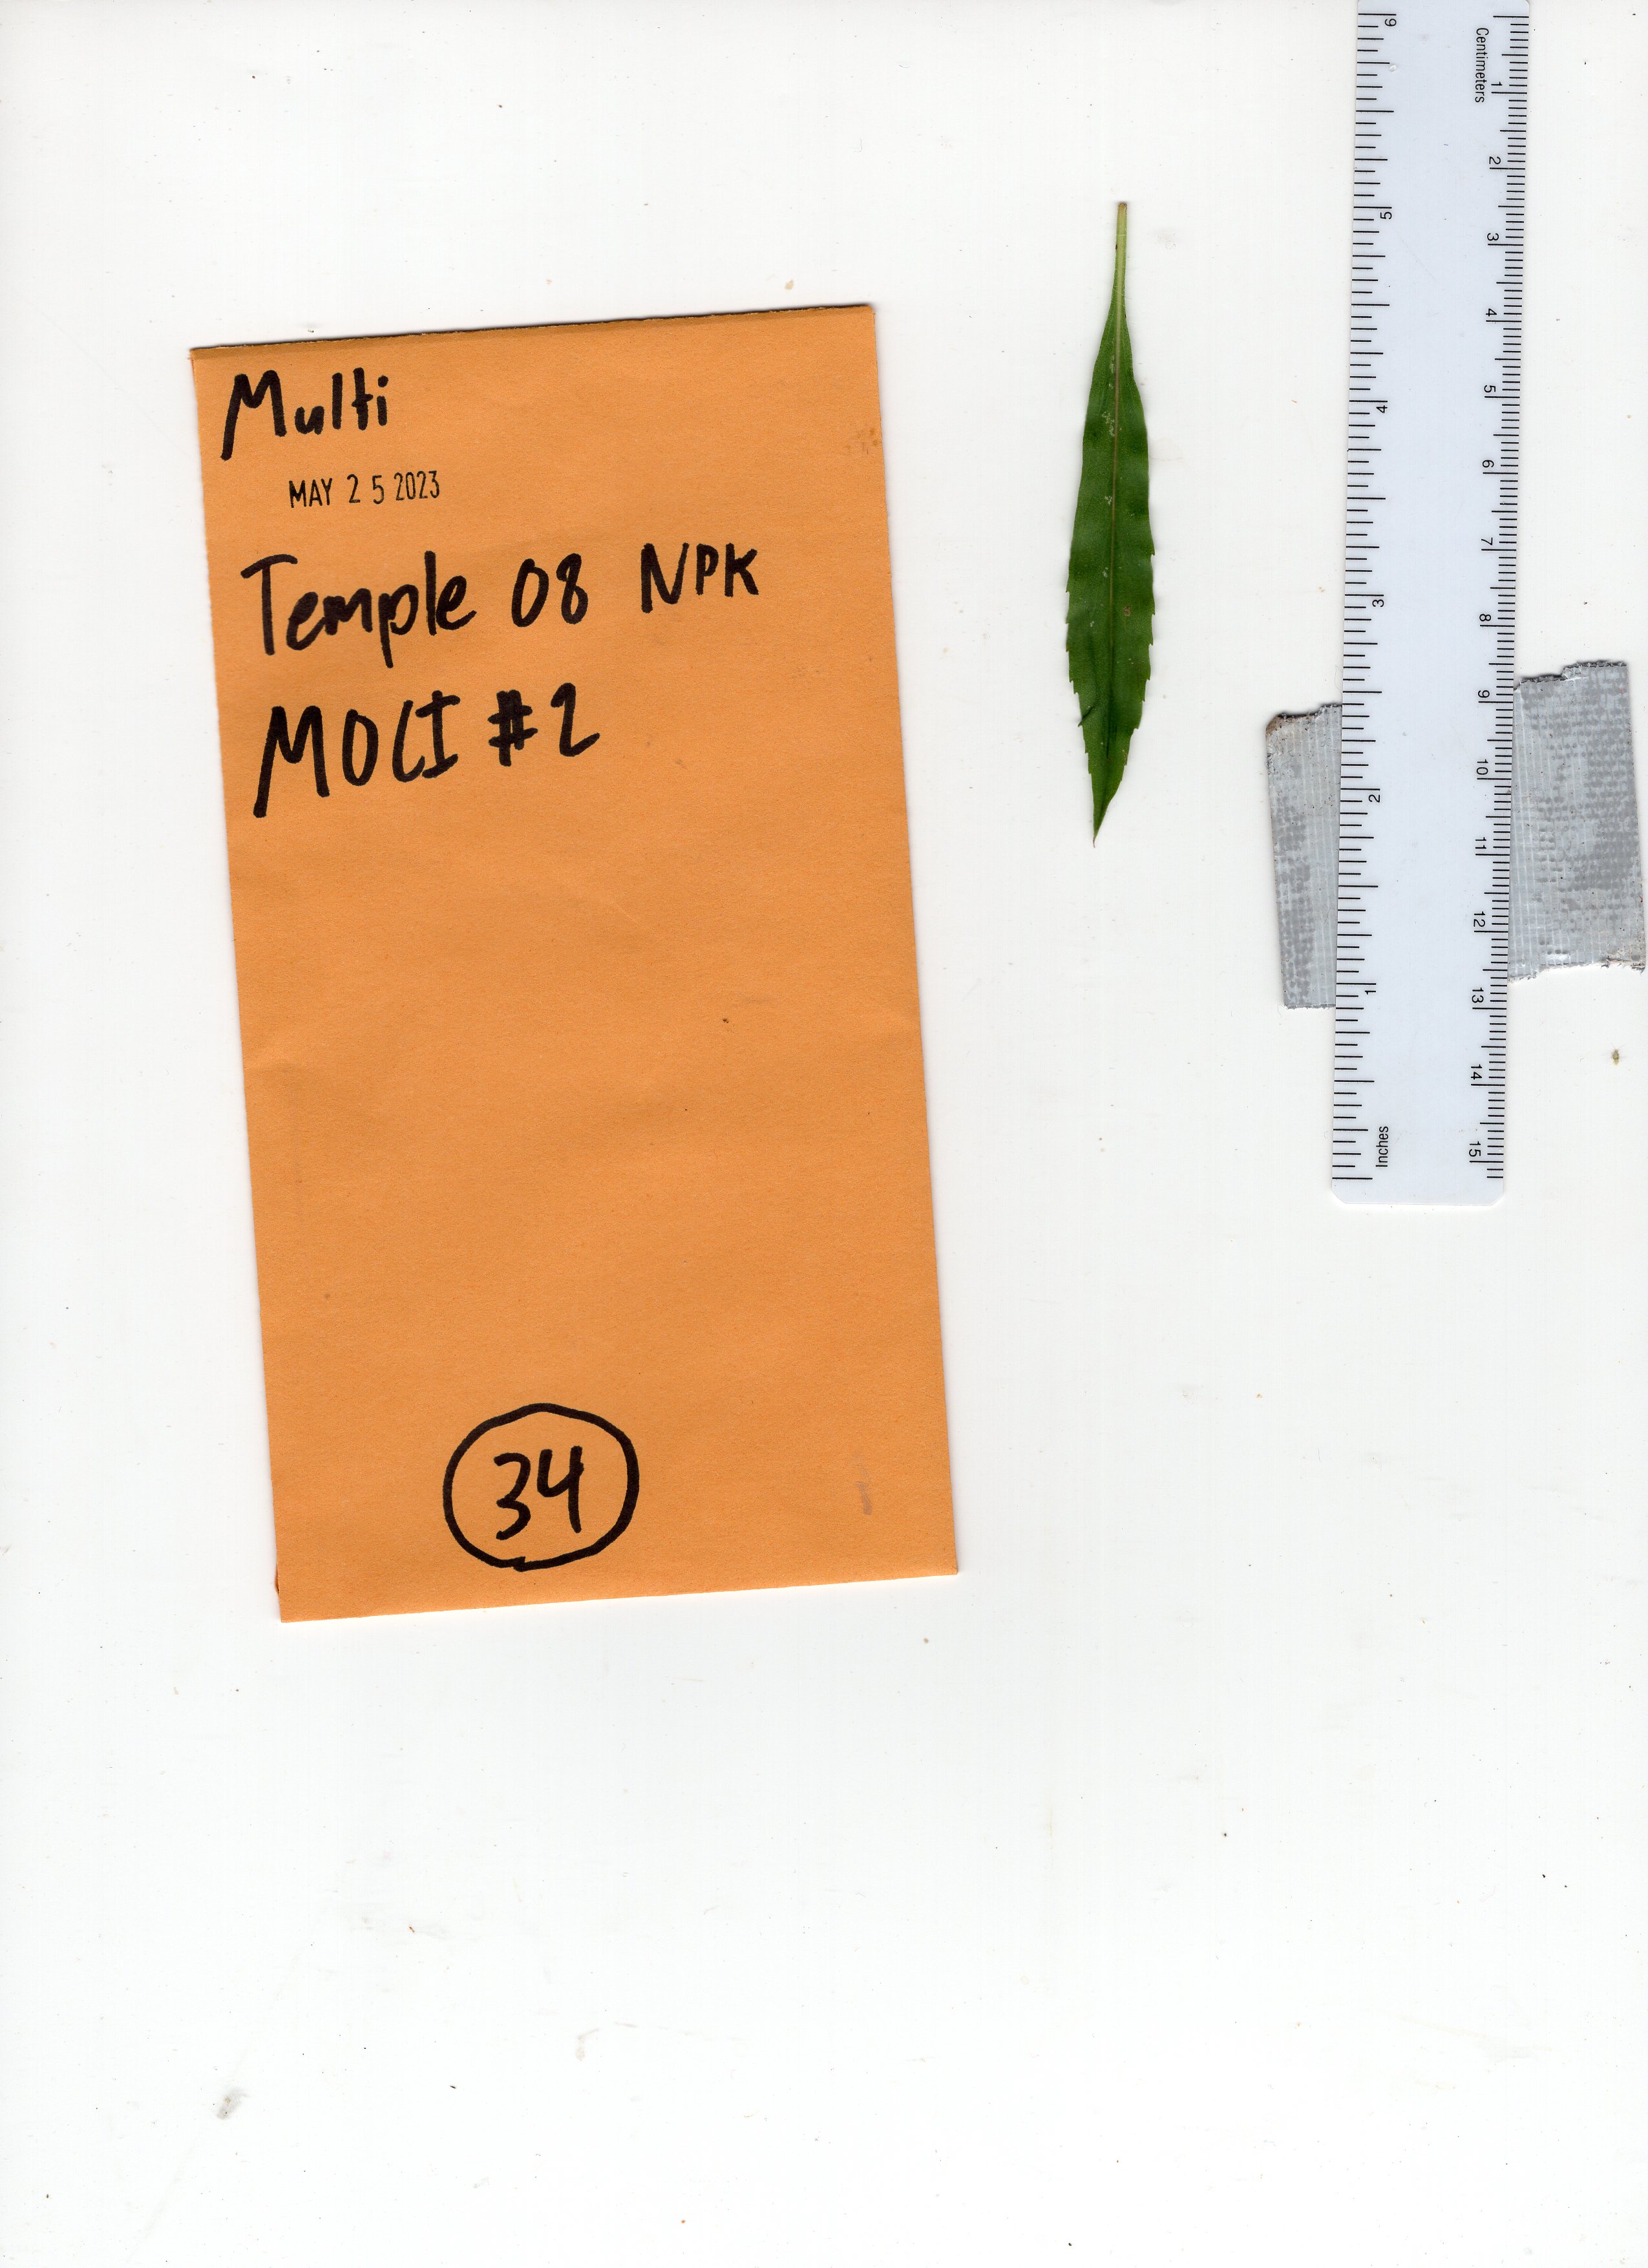 Multi
MAY 25 2023
Temple 08 NPK
MOCI #2
34
Centimeters
1
2
3
4
5
6
7
8
9
10
11
12
13
14
15
6
5
4
3
2
1
Inches